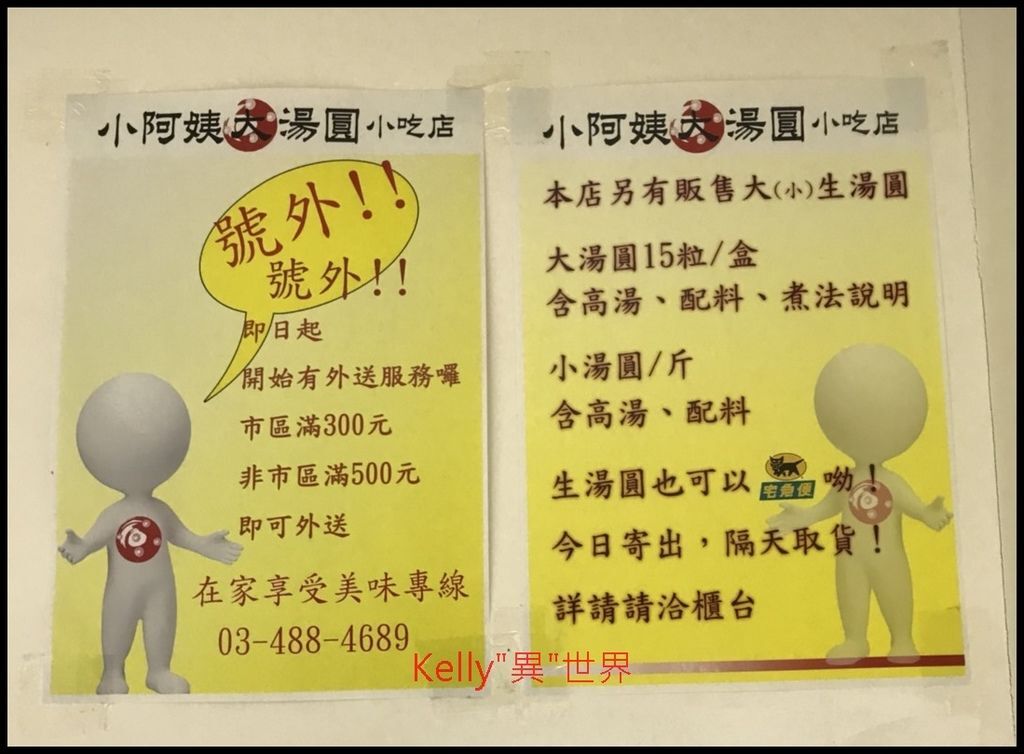 小阿姨大湯圓小吃店
號外!!
號外!!
即日起
開始有外送服務囉
市區滿300元
非市區滿500元
即可外送
在家享受美味專線
03-488-4689
小阿姨大湯圓小吃店
本店另有販售大(小)生湯圓
大湯圓15粒/盒
含高湯、配料、煮法說明
小湯圓/斤
含高湯、配料
生湯圓也可以宅急便呦!
今日寄出,隔天取貨!
詳請請洽櫃台
Kelly"異"世界